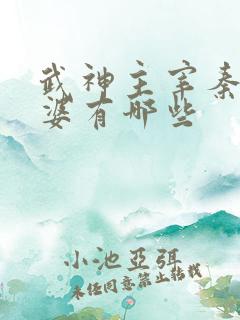 武神主宰秦
婆有哪些
小池亞弭
未经同意禁止转载